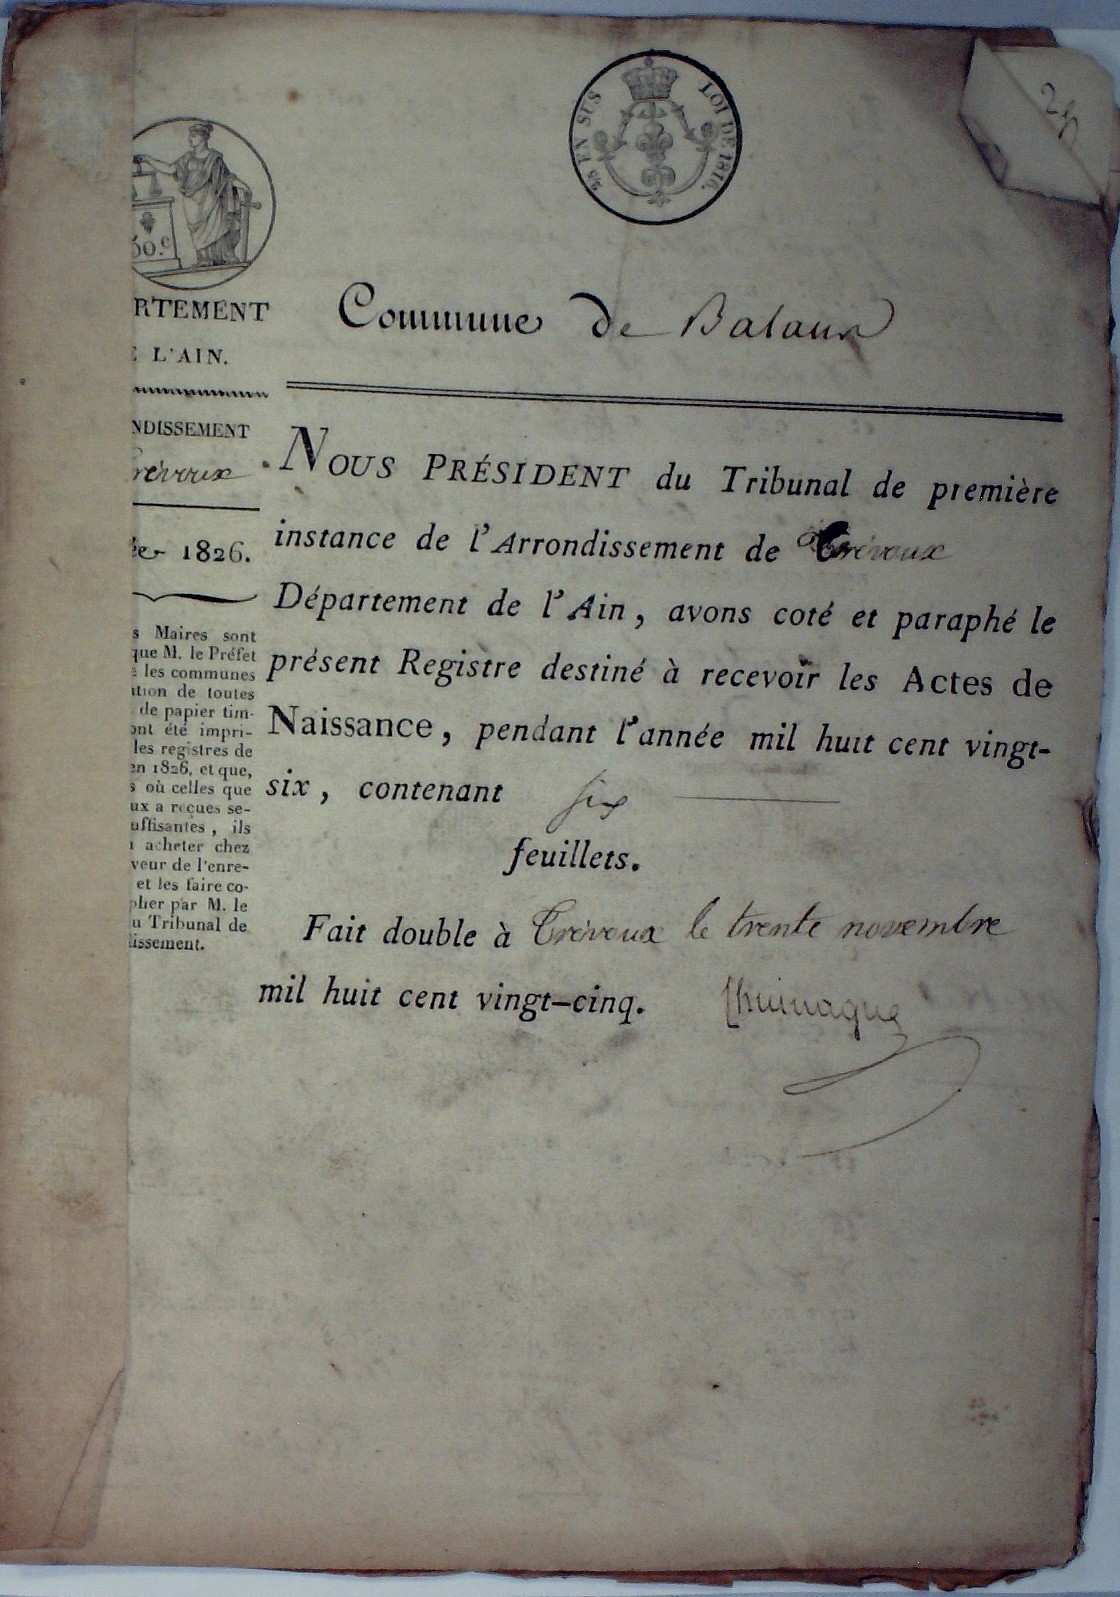 25 EN SUS
LOI DE 1816.
50.c
RTEMENT
L'AIN.
NDISSEMENT
révoux
1826.
s Maires sont
que M. le Préfet
les communes
ition de toutes
de papier tim-
ont été impri-
les registres de
en 1826, et que,
s où celles que
ux a reçues se-
uffisantes, ils
acheter chez
veur de l'enre-
et les faire co-
pher par M. le
u Tribunal de
issement.
Commune de Balaun
NOUS PRÉSIDENT du Tribunal de première
instance de l'Arrondissement de Trévoux
Département de l'Ain, avons coté et paraphé le
présent Registre destiné à recevoir les Actes de
Naissance, pendant l'année mil huit cent vingt-
six, contenant six
feuillets.
Fait double à Trévoux le trente novembre
mil huit cent vingt-cinq.